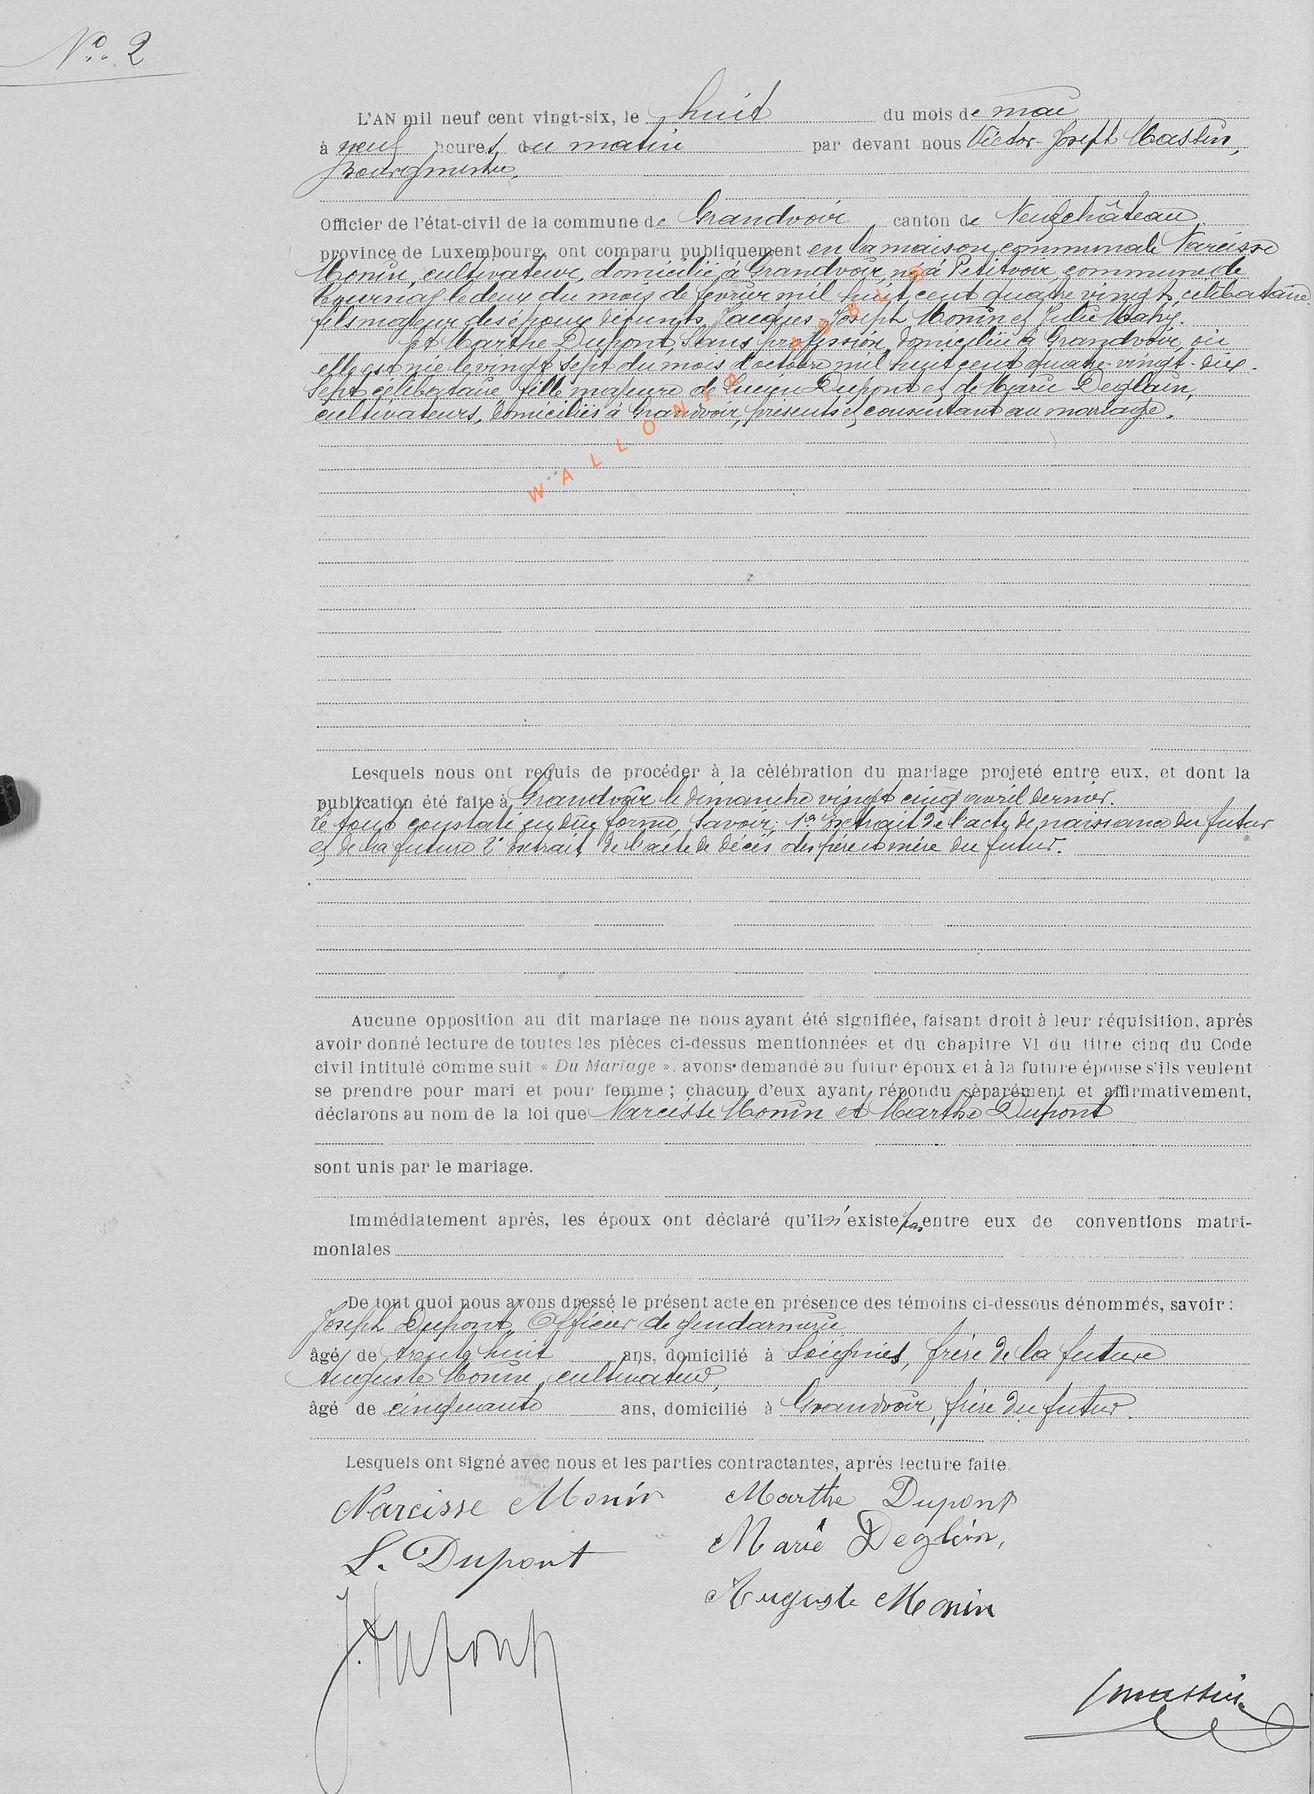 No. 2
L'AN mil neuf cent vingt-six, le huit du mois de mai
à neuf heures du matin par devant nous Victor-Joseph Massin,
Bourgmestre,
Officier de l'état-civil de la commune de Grandvoir canton de Neufchâteau
province de Luxembourg, ont comparu publiquement en la maison communale Narcisse
Monin, cultivateur, domicilié à Grandvoir, né à Petitvoir commune de
Tournay le deux du mois de février mil huit cent quatre vingt, célibataire,
fils majeur des époux défunts Jacques Joseph Monin et Julie
et Marthe Dupont, sans profession, domiciliée à Grandvoir, où
elle est née le vingt sept du mois d'octobre mil huit cent quatre-vingt-dix-
sept célibataire, fille majeure de Lucien Dupont et de Marie Deglain,
cultivateurs, domiciliés à Grandvoir, présents et consentant au mariage.
WALLONIA ASBL ©
Lesquels nous ont requis de procéder à la célébration du mariage projeté entre eux, et dont la
publication été faite à Grandvoir le dimanche vingt cinq avril dernier.
Le tout constaté en due forme, savoir: 1° extrait de l'acte de naissance du futur
et de la future 2° extrait de l'acte de décès des père et mère du futur.
Aucune opposition au dit mariage ne nous ayant été signifiée, faisant droit à leur réquisition, après
avoir donné lecture de toutes les pièces ci-dessus mentionnées et du chapitre VI du titre cinq du Code
civil intitulé comme suit « Du Mariage », avons demandé au futur époux et à la future épouse s'ils veulent
se prendre pour mari et pour femme ; chacun d'eux ayant répondu séparément et affirmativement,
déclarons au nom de la loi que Narcisse Monin et Marthe Dupont
sont unis par le mariage.
Immédiatement après, les époux ont déclaré qu'il n'existe pas entre eux de conventions matri-
moniales
De tout quoi nous avons dressé le présent acte en présence des témoins ci-dessous dénommés, savoir :
Joseph Dupont, Officier de gendarmerie
âgé de trente huit ans, domicilié à Soignies, frère de la future
Auguste Monin, cultivateur,
âgé de cinquante ans, domicilié à Grandvoir, frère du futur.
Lesquels ont signé avec nous et les parties contractantes, après lecture faite.
Narcisse Monin Marthe Dupont
L. Dupont Marie Deglain,
Auguste Monin
J. Dupont
Massin